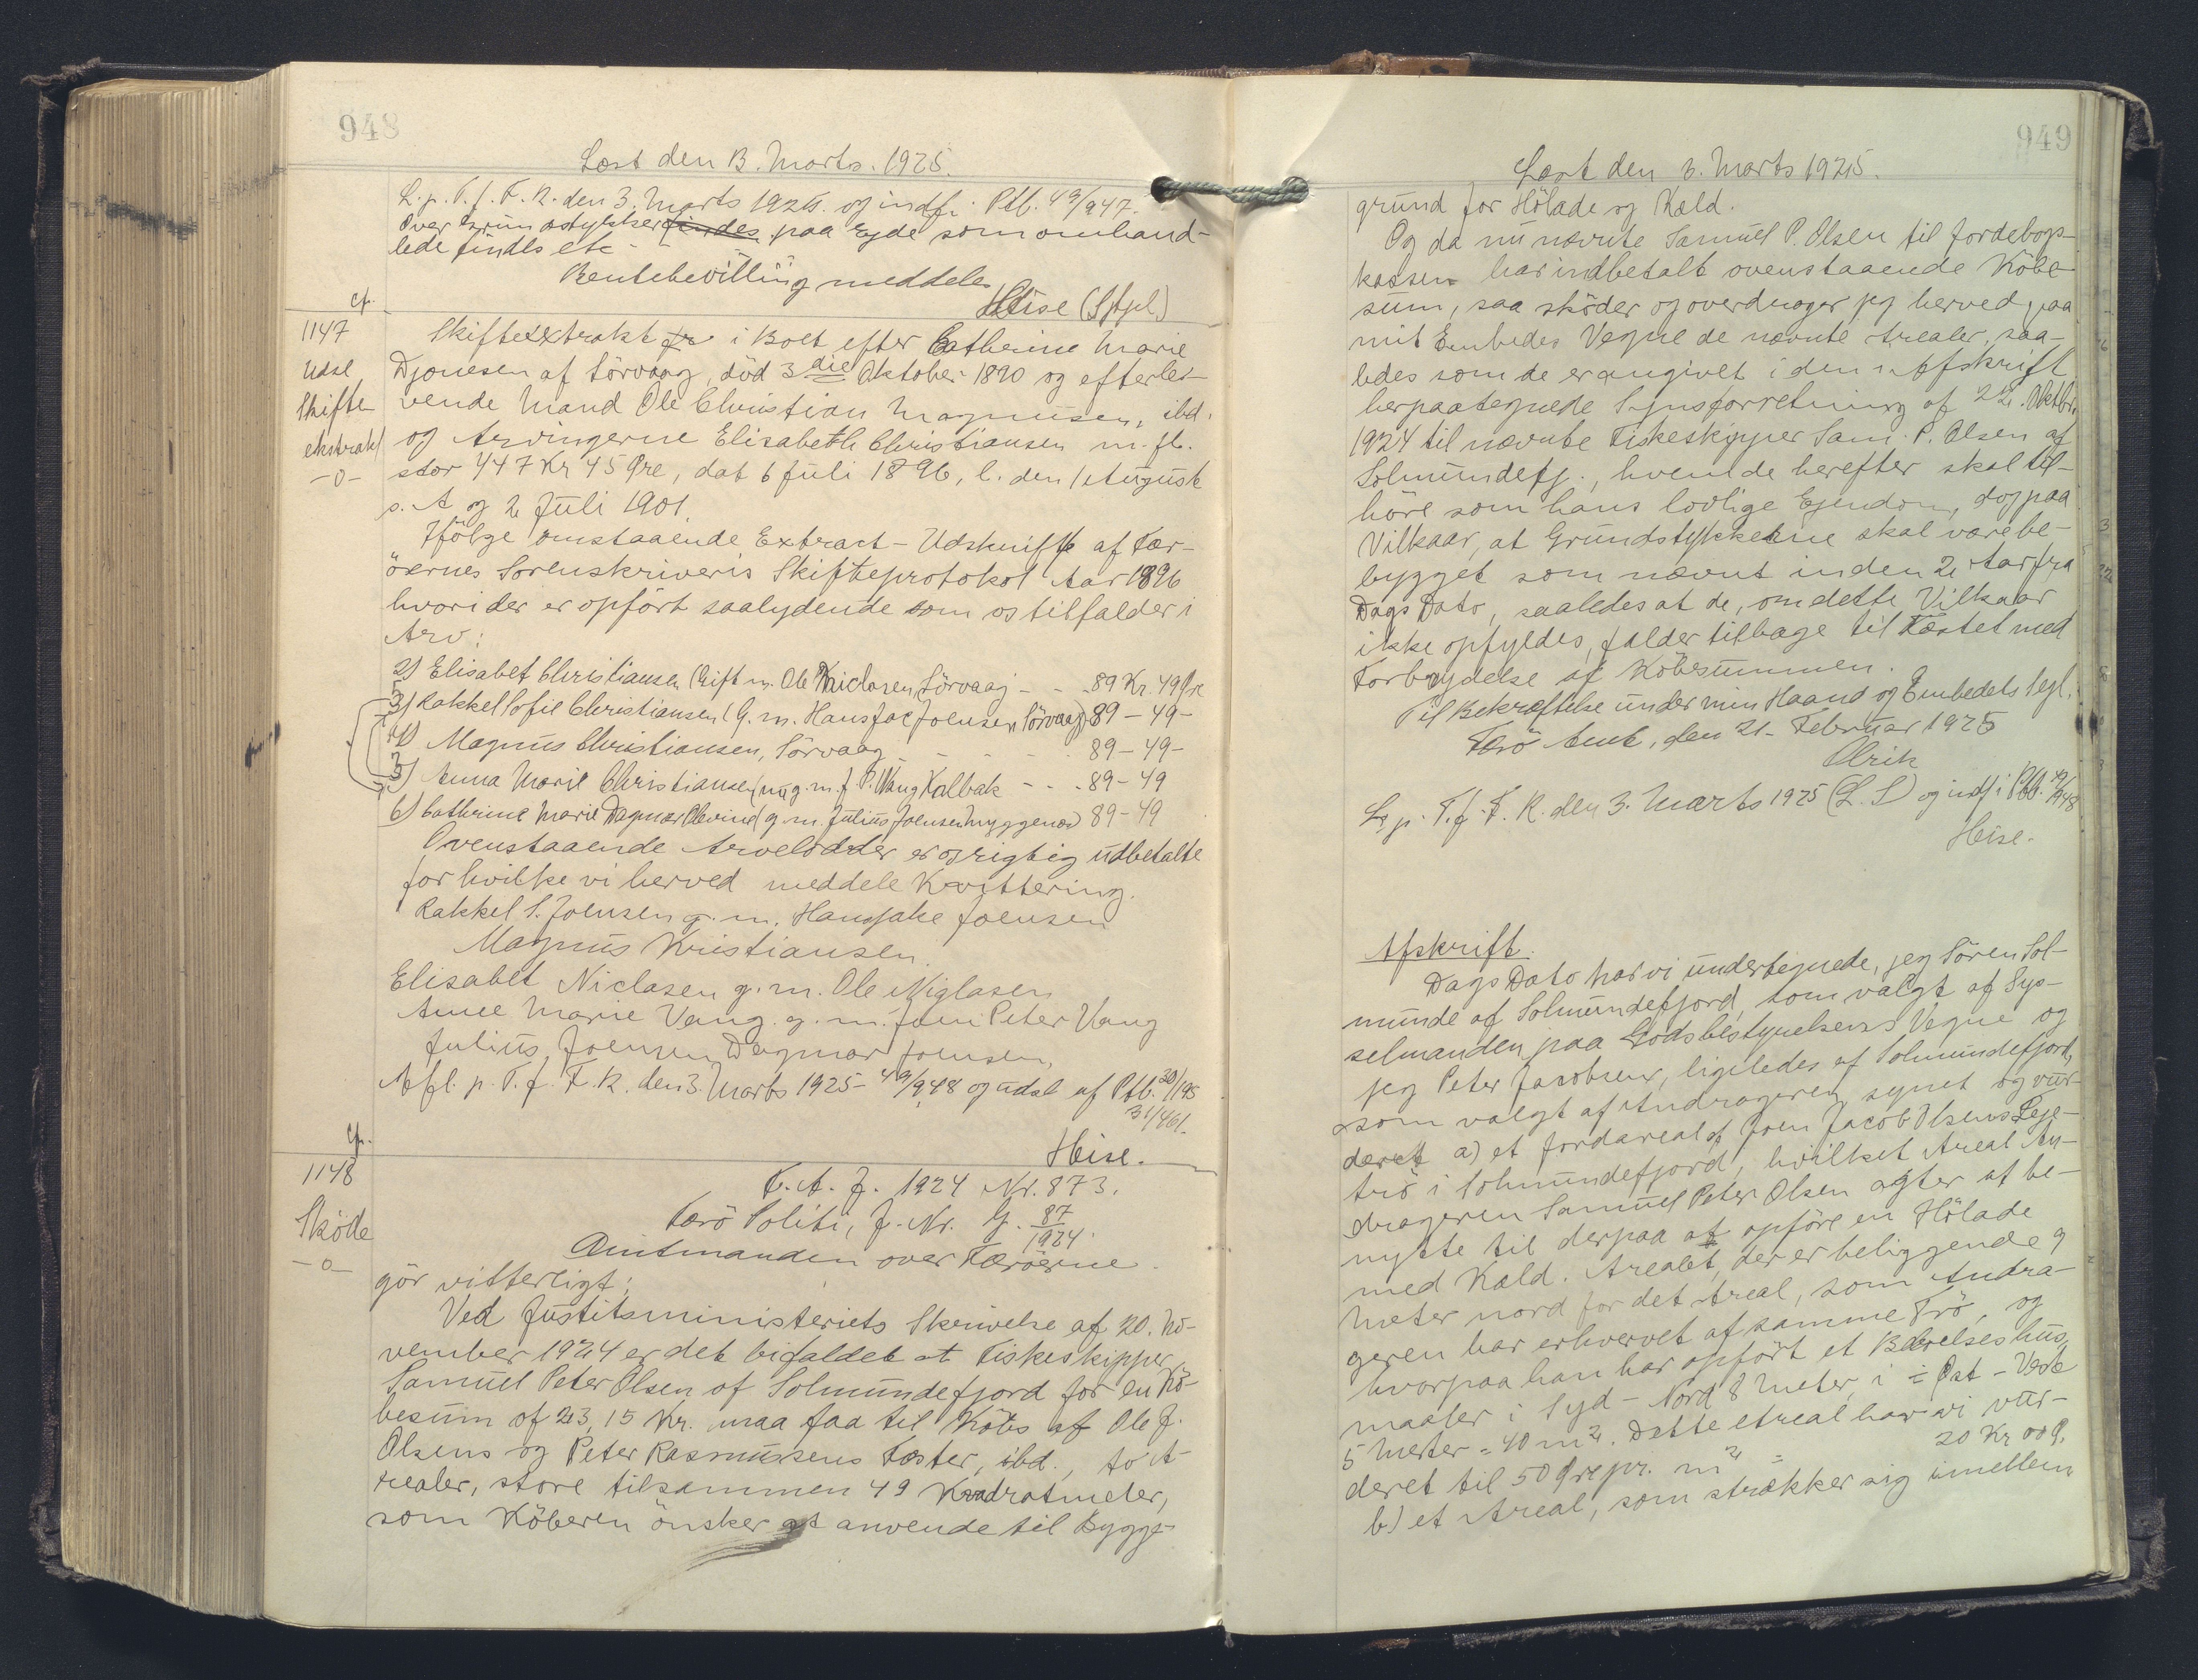 948
Læst den 3. Marts. 1925.
L. p. T. f. F. R. den 3. Marts 1925. og indf. i Ptb. 49/947.
Over Grundstykker findes paa Eyde som omhand-
lede findes etc
Bentebevilling meddeles
Heise (Sspl)
cf.
1147
Udsl
Skifte
ekstrakt
-o-
Skifteextrakt fr i Boet efter Cathrine Marie
Djonesen af Sörvaag, död 3die Oktober 1890 og efterle-
vende Mand Ole Christian Magnussen, ibd.
og Arvingerne Elisabeth Christiansen m. fl.
stor 447 Kr 45 Øre, dat 6 Juli 1896, l. den 1 August
s. A og 2 Juli 1901.
Ifölge omstaaende Extract-Udskrift af Fær-
öernes Sorenskriveris Skifteprotokol Aar 1896
hvori der er opfört saalydende som os tilfalder i
Arv:
2) Elisabet Christiansen (Gift m. Ole Niclasen, Sörvaag - - - 89 Kr. 49 Øre
3) Rakkel Sofie Christiansen (G. m. Hans Jac Joensen Sörvaag) 89 - 49 -
4) Magnus Christiansen, Sörvaag - - - - 89 - 49 -
5) Anna Marie Christiansen (nu g. m. J. P. Vang Kalbak - - - 89 - 49
6) Cathrine Marie Dagmar Olevine (g. m. Julius Joensen Myggenæs) 89 - 49
Ovenstaaende Arvelodder er os rigtig udbetalte
for hvilke vi herved meddele Kvittering.
Rakkel S. Joensen g. m. Hans Jake Joensen
Magnus Kristiansen.
Elisabet Niclasen g. m. Ole Niglasen
Anne Marie Vang. g. m. Joen Peter Vang
Julius Joensen Dagmar Joensen,
Afl. p. T. f. F. R. den 3. Marts 1925 - 49/948 og udsl af Ptb. 30/195
31/461.
Heise.
cf.
1148
Sköde
-o-
F. A. J. 1924 Nr. 873.
Færö Politi, J. Nr. G. 87/1924.
Amtmanden over Færöerne
gör vitterligt:
Ved Justitsministeriets Skrivelse af 20. No-
vember 1924 er det bifaldet at Fiskeskipper
Samuel Peter Olsen af Solmundefjord for en Kö-
besum af 23,15 Kr. maa faa til Köbs af Ole J.
Olsens og Peter Rasmussens Fæster, ibd., to A-
realer, store tilsammen 49 Kvadratmeter,
som Köberen önsker at anvende til Bygge-
949
Læst den 3. Marts 1925.
grund for Hölade og Kæld.
Og da nu nævnte Samuel P. Olsen til Jordebogs-
kassen har indbetalt ovenstaaende Köbe
sum, saa sköder og overdrager jeg herved paa
mit Embedes Vegne de nævnte Arealer, saa-
ledes som de er angivet i den i Afskrift
herpaategnede Synsforretning af 22. Oktbr.
1924 til nævnte Fiskeskipper Sam. P. Olsen af
Solmundefj., hvem de herefter skal til-
höre som hans lovlige Ejendom, dog paa
Vilkaar, at Grundstykkerne skal være be-
bygget som nævnt inden 2 Aar fra
Dags Dato, saaledes at de, om dette Vilkaar
ikke opfyldes, falder tilbage til Fæstet med
Forbrydelse af Köbesummen.
Til Bekræftelse under min Haand og Embedets Segl.
Færö Amt, den 21. Februar 1925
Olrik
L. p. T. f. F. R. den 3. Marts 1925 (L. S) og indf i Ptb. 49/948
Heise.
Afskrift.
Dags Dato har vi undertegnede, jeg Sören Sol-
munde af Solmundefjord, som valgt af Sys-
selmanden paa Godsbestyrelsens Vegne og
jeg Peter Jacobsen, ligeledes af Solmundefjord,
som valgt af Andrageren synet og vur-
deret a) et Jordareal af Joen Jacob Olsens Leje-
trö i Solmundefjord, hvilket Areal An-
drageren Samuel Peter Olsen agter at be-
nytte til derpaa at opföre en Hölade
med Kæld. Arealet, der er beliggende 9
Meter nord for det Areal, som Andra-
geren har erhvervet af samme Trö, og
hvorpaa han har opfört et Bærelseshus,
maaler i Syd-Nord 8 Meter, i ÷ Øst-Vest
5 Meter = 40 m2. Dette Areal har vi vur-
deret til 50 Øre pr. m2 = 20 Kr 00 Ø.
b) et Areal, som strækker sig imellem